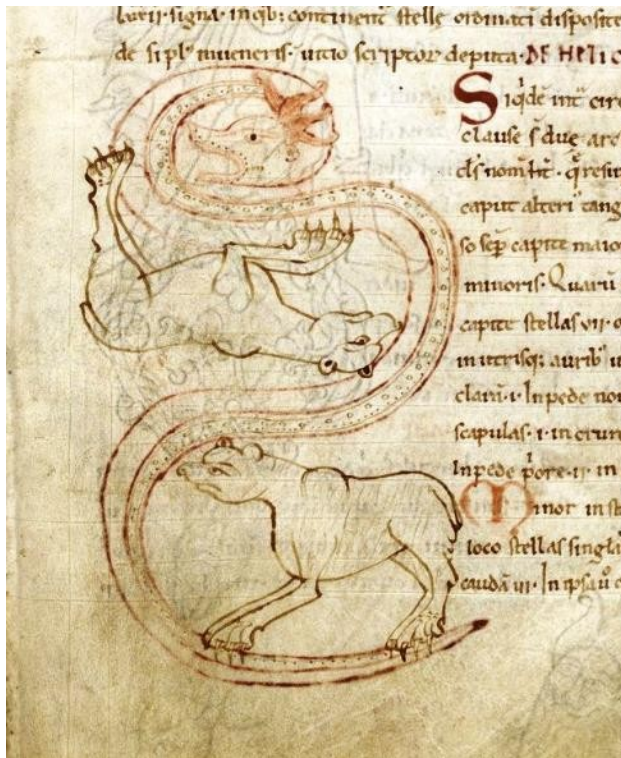 signa. in qb: continent stelle ordinati disposite
de si pl' mueneris. uitio scriptor deputa. DE HELIC
Siqde int circ
clause s due arc
cls nom ht. q resu
caput alteri tang
so sep capite maio
minoris. Quarū
capite stellas vii. o
in utrisq; aurib' u
clara. i. In pede nou
scapulas. i. in crure
In pede p'ore. ii. in
Minor in st
loco stellas singla
caudā vii. In ipsa